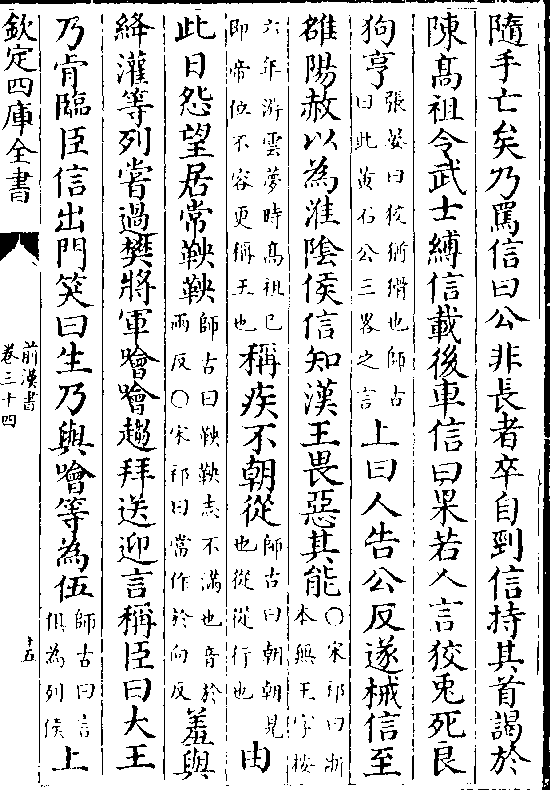 隨手亡矣乃罵信曰公非長者卒自剄信持其首謁於
陳高祖令武士縛信載後車信曰果若人言狡兎死良
狗亨張晏曰狡猶猾也師古曰此黄石公三畧之言上曰人告公反遂械信至
雒陽赦以為淮陰侯信知漢王畏惡其能○宋祁曰浙本無王字按
六年游雲夢時高祖已即帝位不容更稱王也稱疾不朝從師古曰朝朝見也從從行也由
此日怨望居常鞅鞅師古曰鞅鞅志不滿也音於兩反○宋祁曰當作於向反羞與
絳灌等列嘗過樊將軍噲噲趨拜送迎言稱臣曰大王
乃肯臨臣信出門笑曰生乃與噲等為伍師古曰言俱為列侯上
欽定四庫全書
前漢書
卷三十四
十五